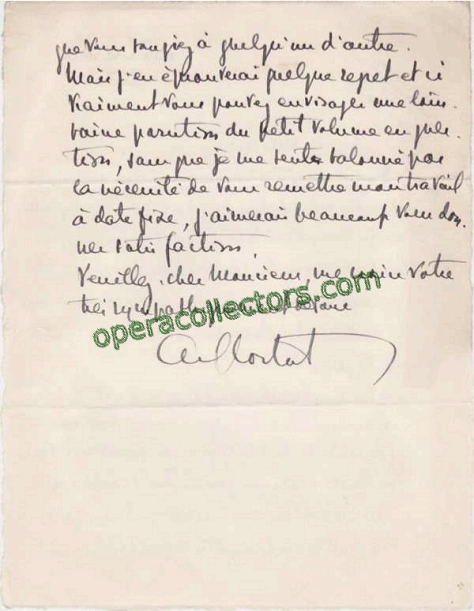 que vous songiez à quelqu'un d'autre.
Mais j'en éprouverai quelque regret et si
vraiment vous pouvez envisager une loin-
taine parution du petit volume en ques-
tion, sans que je me sente talonné par
la nécessité de vous remettre mon travail
à date fixe, j'aimerais beaucoup vous don-
ner satisfaction.
Veuillez, cher Monsieur, me croire votre
très sympathiquement
operacollectors.com
Alf Cortot